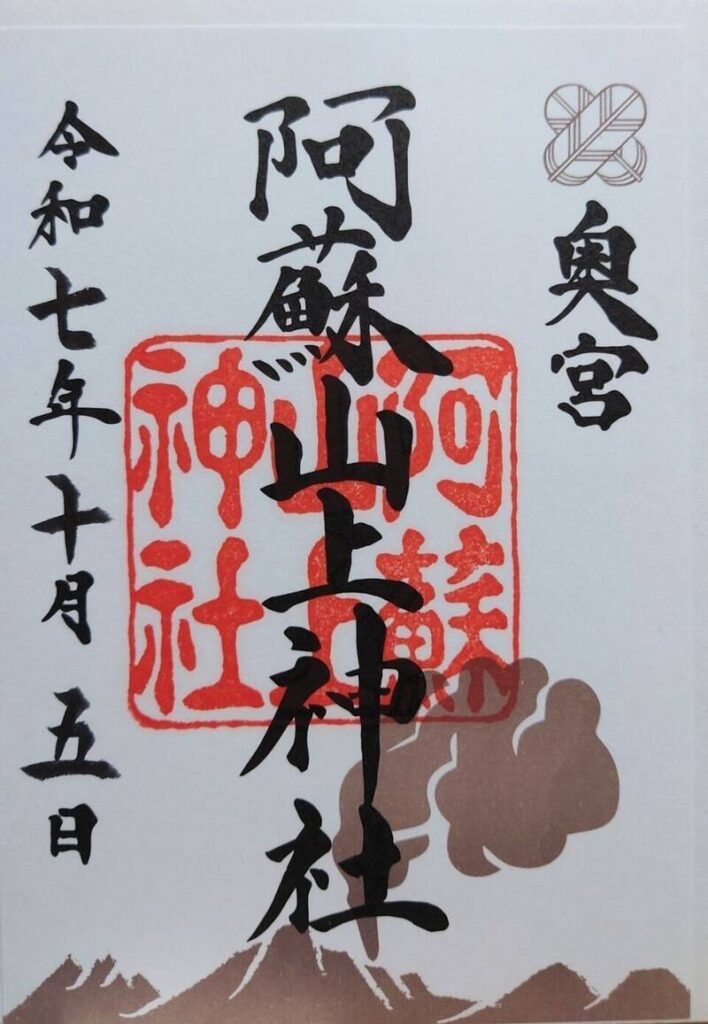 奥宮
阿蘇山上神社
阿蘇山上神社
令和七年十月五日